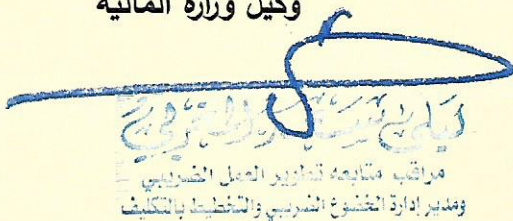 وكيل وزارة المالية
مراقب متابعة تطوير العمل الضريبي
ومدير إدارة الخضوع الضريبي والتخطيط بالتكليف